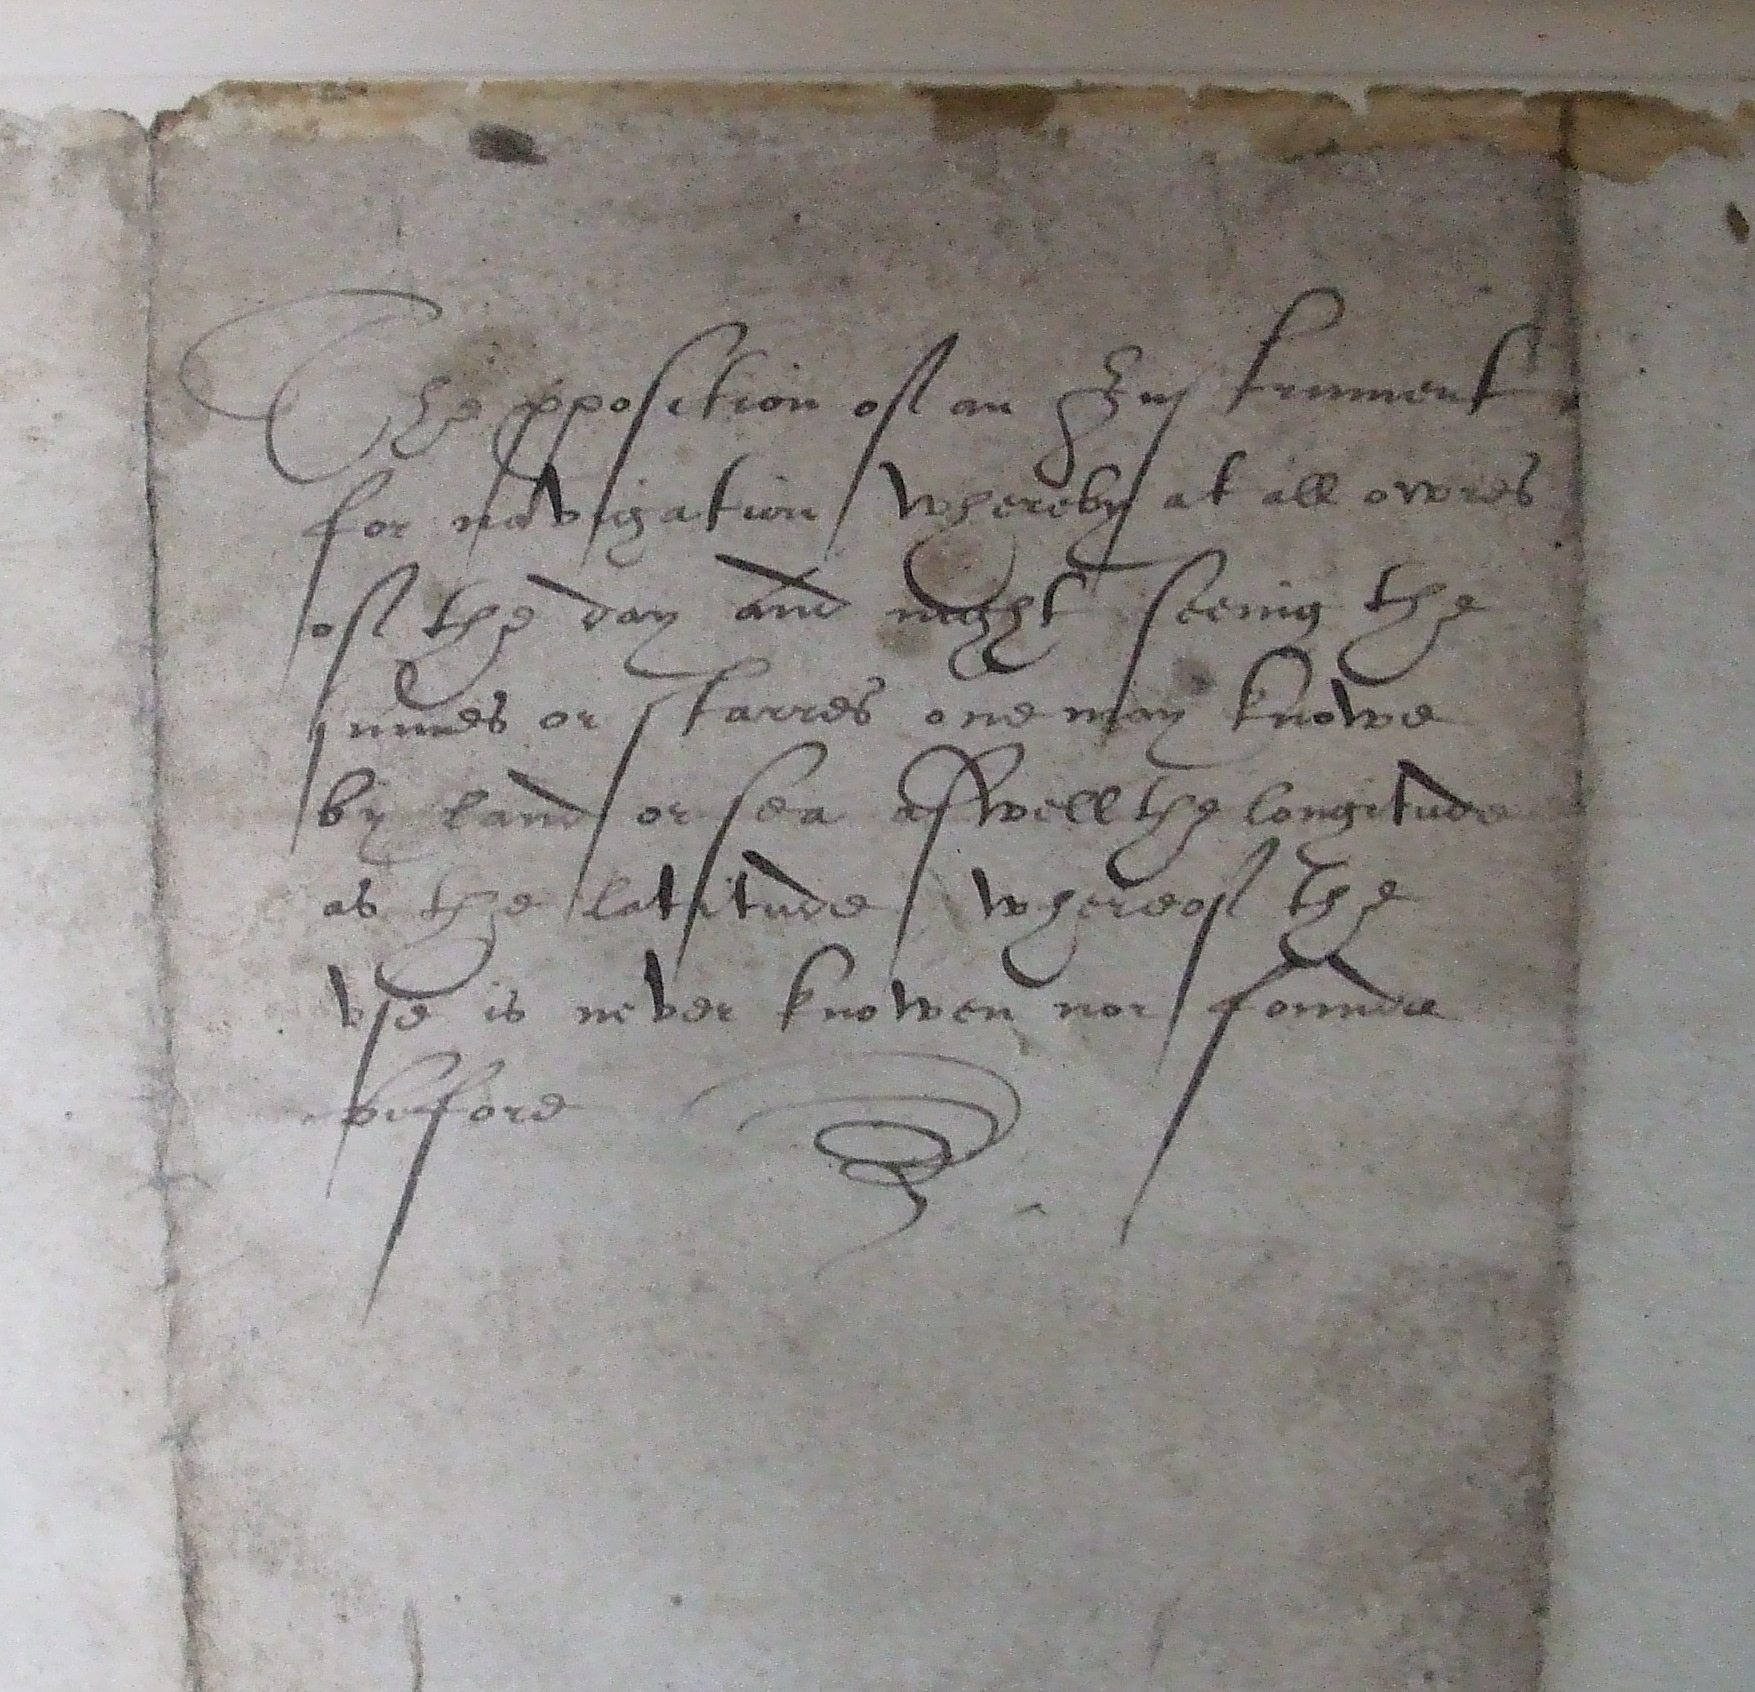 The pposition off an Instrument
for navigation whereby at all owres
off the day and night seeing the
sunnes or starres one may knowe
by land or sea aswell the longitude
as the latitude whereoff the
vse is never knowen nor founde
before